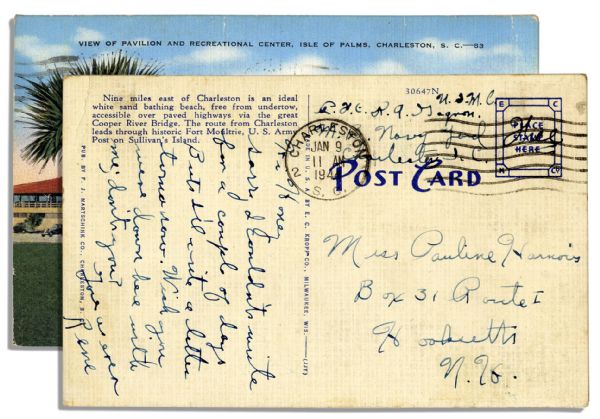 VIEW OF PAVILION AND RECREATIONAL CENTER, ISLE OF PALMS, CHARLESTON, S. C.—83
Nine miles east of Charleston is an ideal
white sand bathing beach, free from undertow,
accessible over paved highways via the great
Cooper River Bridge. The route from Charleston
leads through historic Fort Moultrie, U. S. Army
Post on Sullivan's Island.
30647N
P.F.C. R. A. Gagnon U.S.M.C.
Navy Yard
Charleston S. C.
E C
PLACE
STAMP
HERE
K CO
CHARLESTON
JAN 9
11 AM
194
2
S. C.
POST CARD
PUB. BY J. J. MARTSCHINK CO., CHARLESTON, S.
MADE IN U. S. A. BY E. C. KROPP CO., MILWAUKEE, WIS.
Hi Honey
sorry I couldn't write
for a couple of days
But I'll write a letter
tomorrow. Wish you
were down here with
me, don't you?
Love as ever
Rene
Miss Pauline Harnois
Box 31 Route 1
Hooksett
N. H.